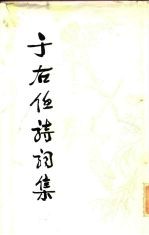 于右任詩詞集